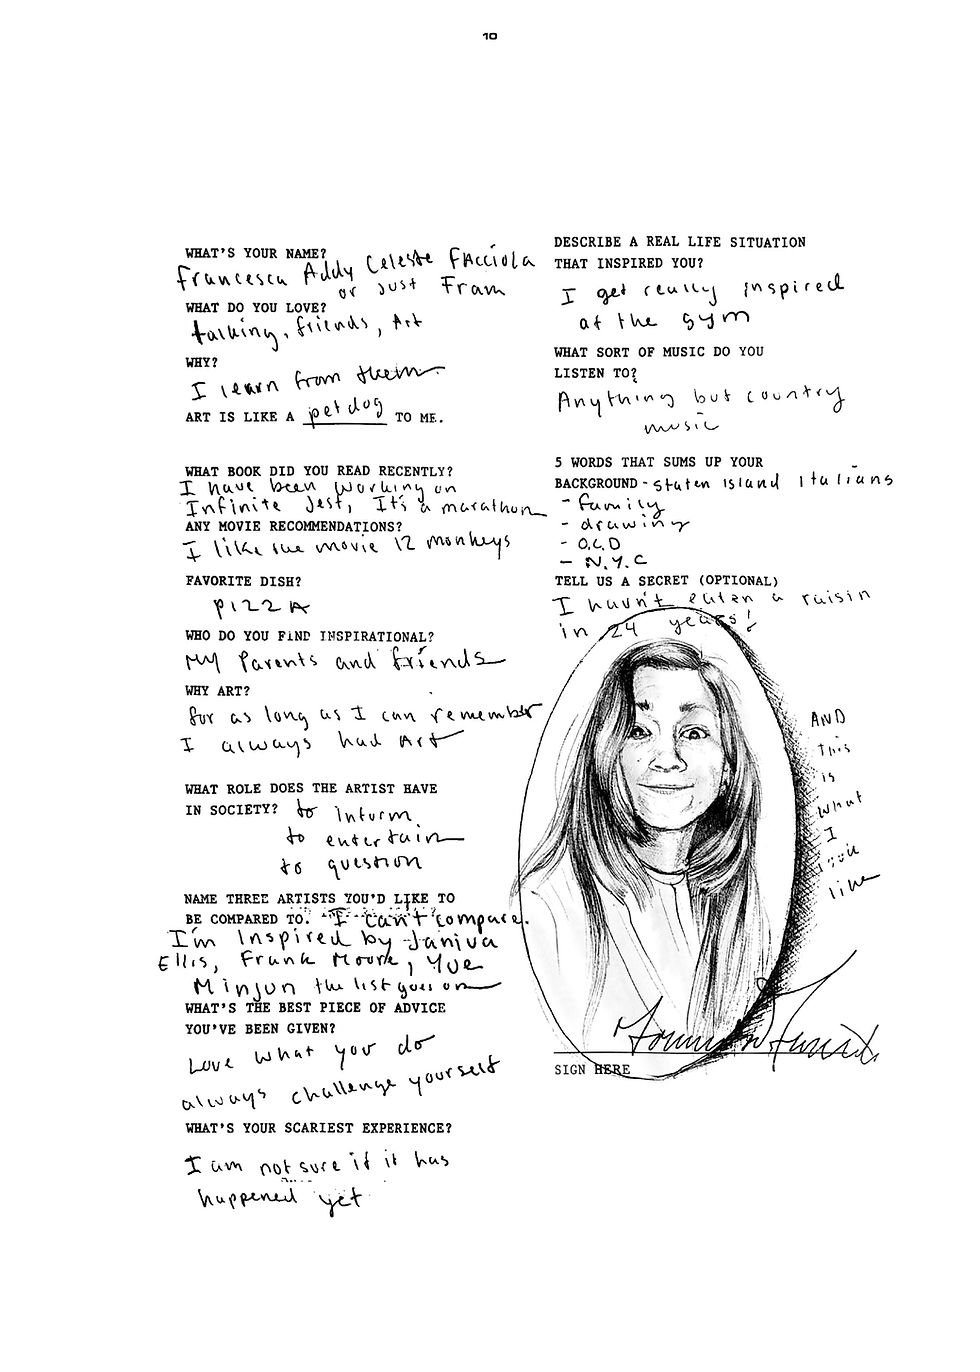 10
WHAT'S YOUR NAME?
Francesca Addy Celeste FAcciola
or Just Fram
WHAT DO YOU LOVE?
talking, friends, Art
WHY?
I learn from them.
ART IS LIKE A pet dog TO ME.
WHAT BOOK DID YOU READ RECENTLY?
I have been working on
Infinite Jest, It's a marathon
ANY MOVIE RECOMMENDATIONS?
I like the movie 12 monkeys
FAVORITE DISH?
PIZZA
WHO DO YOU FIND INSPIRATIONAL?
My Parents and friends
WHY ART?
for as long as I can remember
I always had Art
WHAT ROLE DOES THE ARTIST HAVE
IN SOCIETY? to Inform
to entertain
to question
NAME THREE ARTISTS YOU'D LIKE TO
BE COMPARED TO. I can't compare.
I'm Inspired by Janiva
Ellis, Frank Moore, Yue
Minjun the list goes on
WHAT'S THE BEST PIECE OF ADVICE
YOU'VE BEEN GIVEN?
Love what you do
always challenge yourself
WHAT'S YOUR SCARIEST EXPERIENCE?
I am not sure if it has
happened yet
DESCRIBE A REAL LIFE SITUATION
THAT INSPIRED YOU?
I get really inspired
at the gym
WHAT SORT OF MUSIC DO YOU
LISTEN TO?
Anything but country
music
5 WORDS THAT SUMS UP YOUR
BACKGROUND - Staten Island Italians
- family
- drawing
- O.C.D
- N.Y.C
TELL US A SECRET (OPTIONAL)
I havn't eaten a raisin
in 24 years!
AND
this
is
what
I
look
like
SIGN HERE